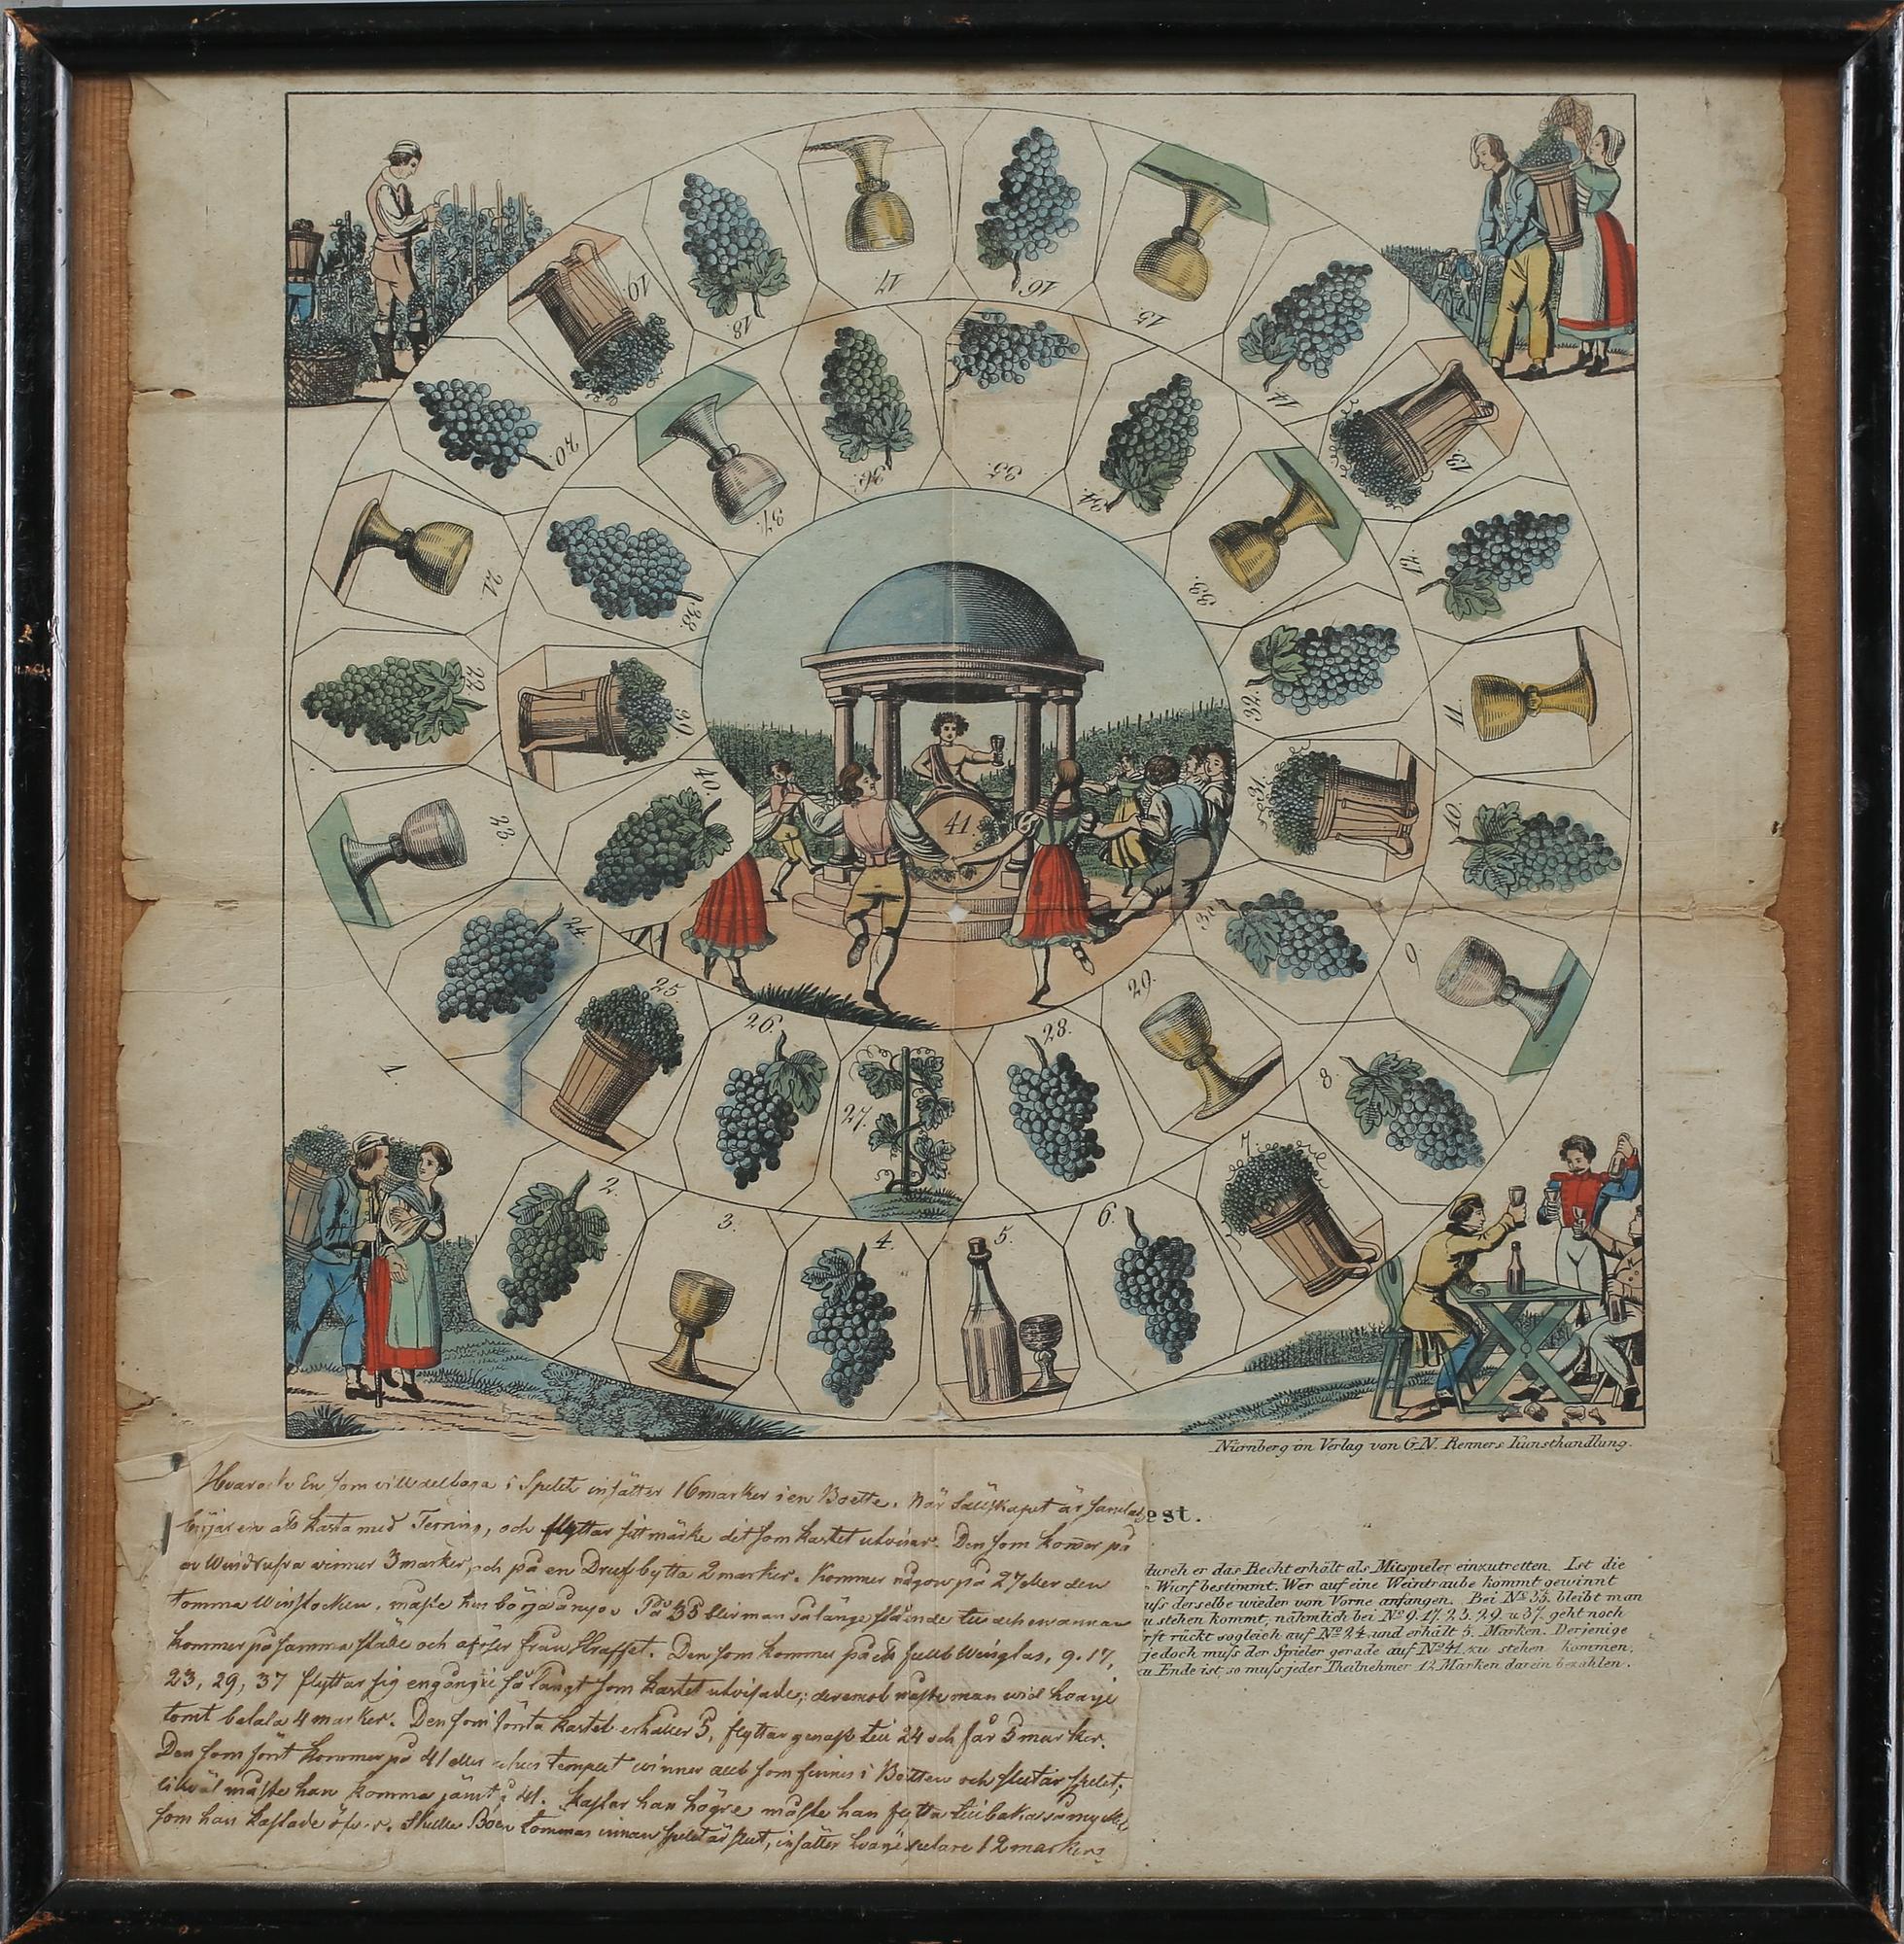 1.
2.
3.
4.
5.
6.
7.
8.
9.
10.
11.
12.
13.
14.
15.
16.
17.
18.
19.
20.
21.
22.
23.
24.
25.
26.
27.
28.
29.
30.
31.
32.
33.
34.
35.
36.
37.
38.
39.
40.
41.
Nürnberg im Verlag von G. N. Renners Kunsthandlung.
Hvar och En som vill deltaga i Spelet insätter 16 marker i en Boette. När Sällskapet är samlad
börjar en att kasta med Terning, och flyttar sitt märke dit som kastet utvisar. Den som kommer på
en Windrufva winner 3 marker, och på en Drufbytta 2 marker. Kommer någon på 27 eller den
tomma Winstocken, måste han börja ånyo. På 35 blir man så länge stående till dess en annan
kommer på samma ställe och aflöser från Straffet. Den som kommer på ett fullt Winglas, 9. 17,
23, 29, 37 flyttar sig en gång så långt som kastet utvisade; deremot måste man wid hvarje
tomt betala 4 marker. Den som i första kastet erhåller 5, flyttar genast till 24 och får 5 marker.
Den som först kommer på 41 eller templet winner allt som finnes i Boetten och slutar spelet;
likwäl måste han komma jämt på 41. Kastar han högre måste han flytta tillbaka så mycket
som han kastade öfver. Skulle Boen tömmas innan spelet är slut, insätter hvarje spelare 12 marker.
est.
durch er das Recht erhält als Mitspieler einzutretten. Ist die
Wurf bestimmt. Wer auf eine Weintraube kommt gewinnt
derselbe wieder von Vorne anfangen. Bei No. 35. bleibt man
zu stehen kommt, nähmlich bei No. 9. 17. 23. 29. u. 37. geht noch
rückt sogleich auf No. 24. und erhält 5. Marken. Derjenige
jedoch muſs der Spieler gerade auf No. 41. zu stehen kommen.
zu Ende ist, so muſs jeder Theilnehmer 12 Marken darein bezahlen.